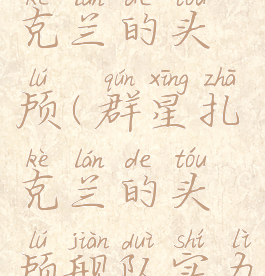 kè lán de tóu
克兰的头
lú qún xīng zhā
颅(群星扎
kè lán de tóu
克兰的头
lú jiàn duì shí lì
颅舰队实力